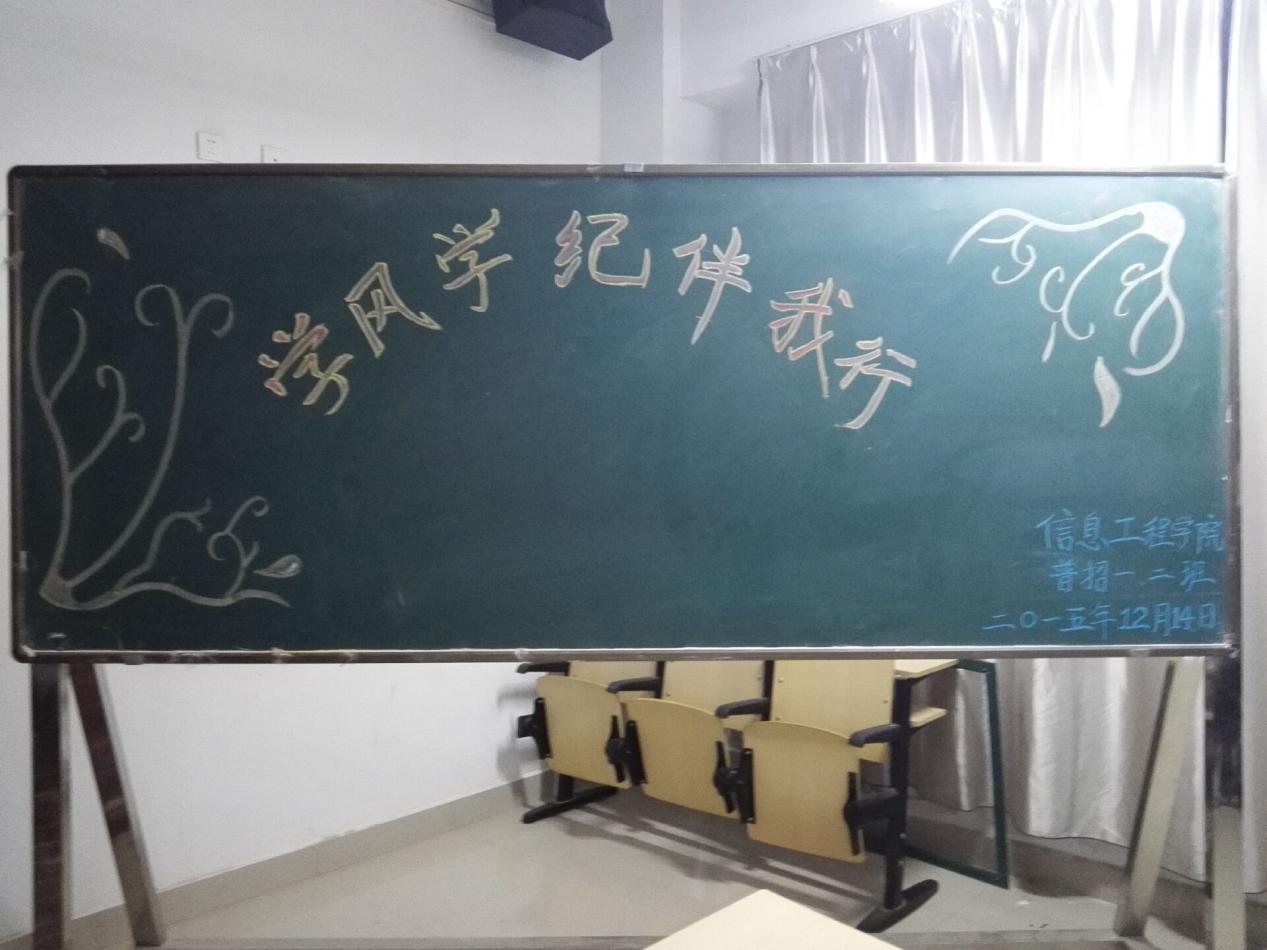 学风学纪伴我行
信息工程学院
普招一.二班
二0一五年12月14日